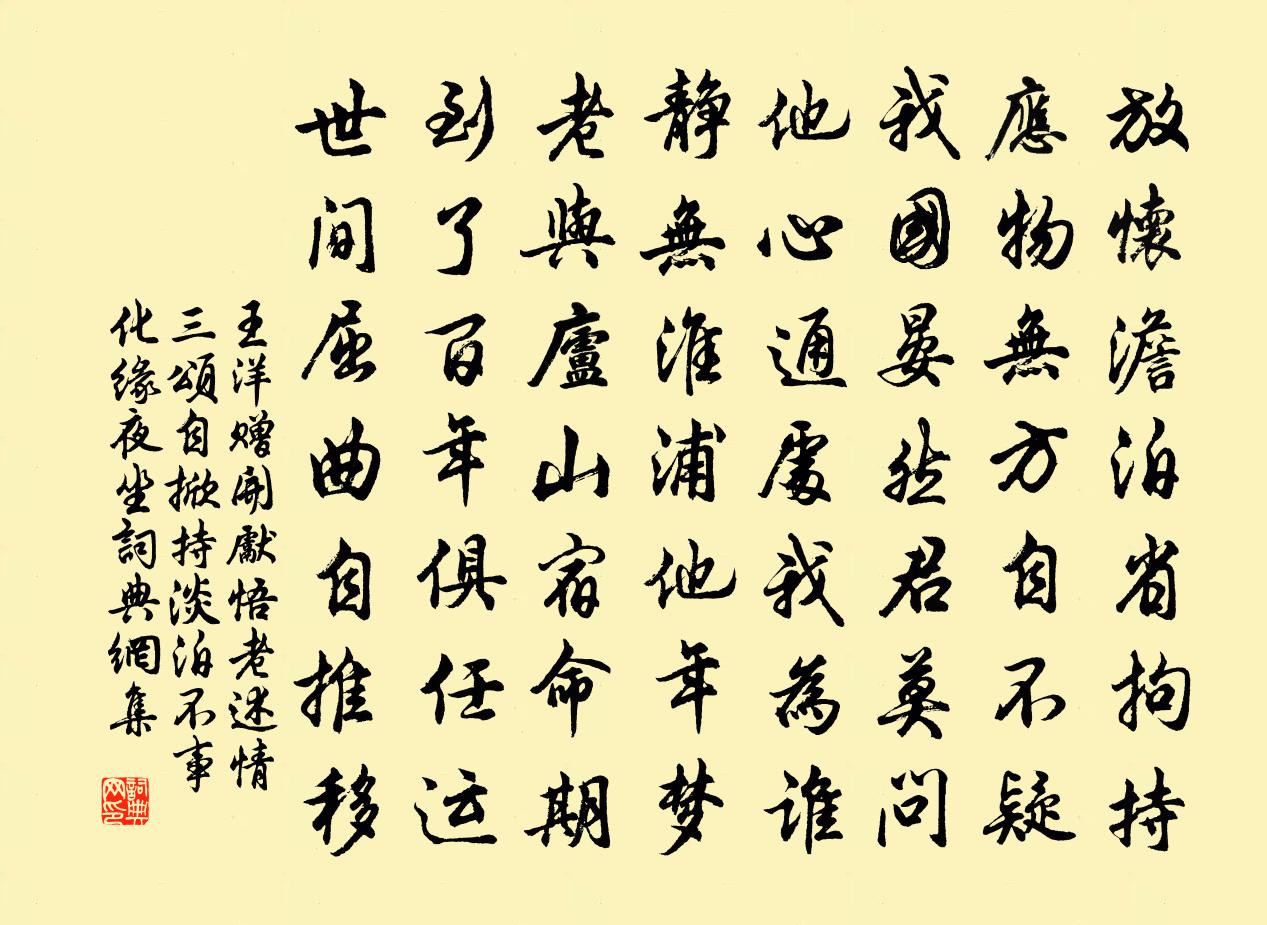 放懷澹泊省拘持
應物無方自不疑
我國晏然君莫問
他心通處我為誰
靜無淮浦他年梦
老與廬山宿命期
到了百年俱任运
世间屈曲自推移
王洋赠開獻悟老述情
三頌自掀持淡泊不事
化缘夜坐詞典網集
詞典
网印